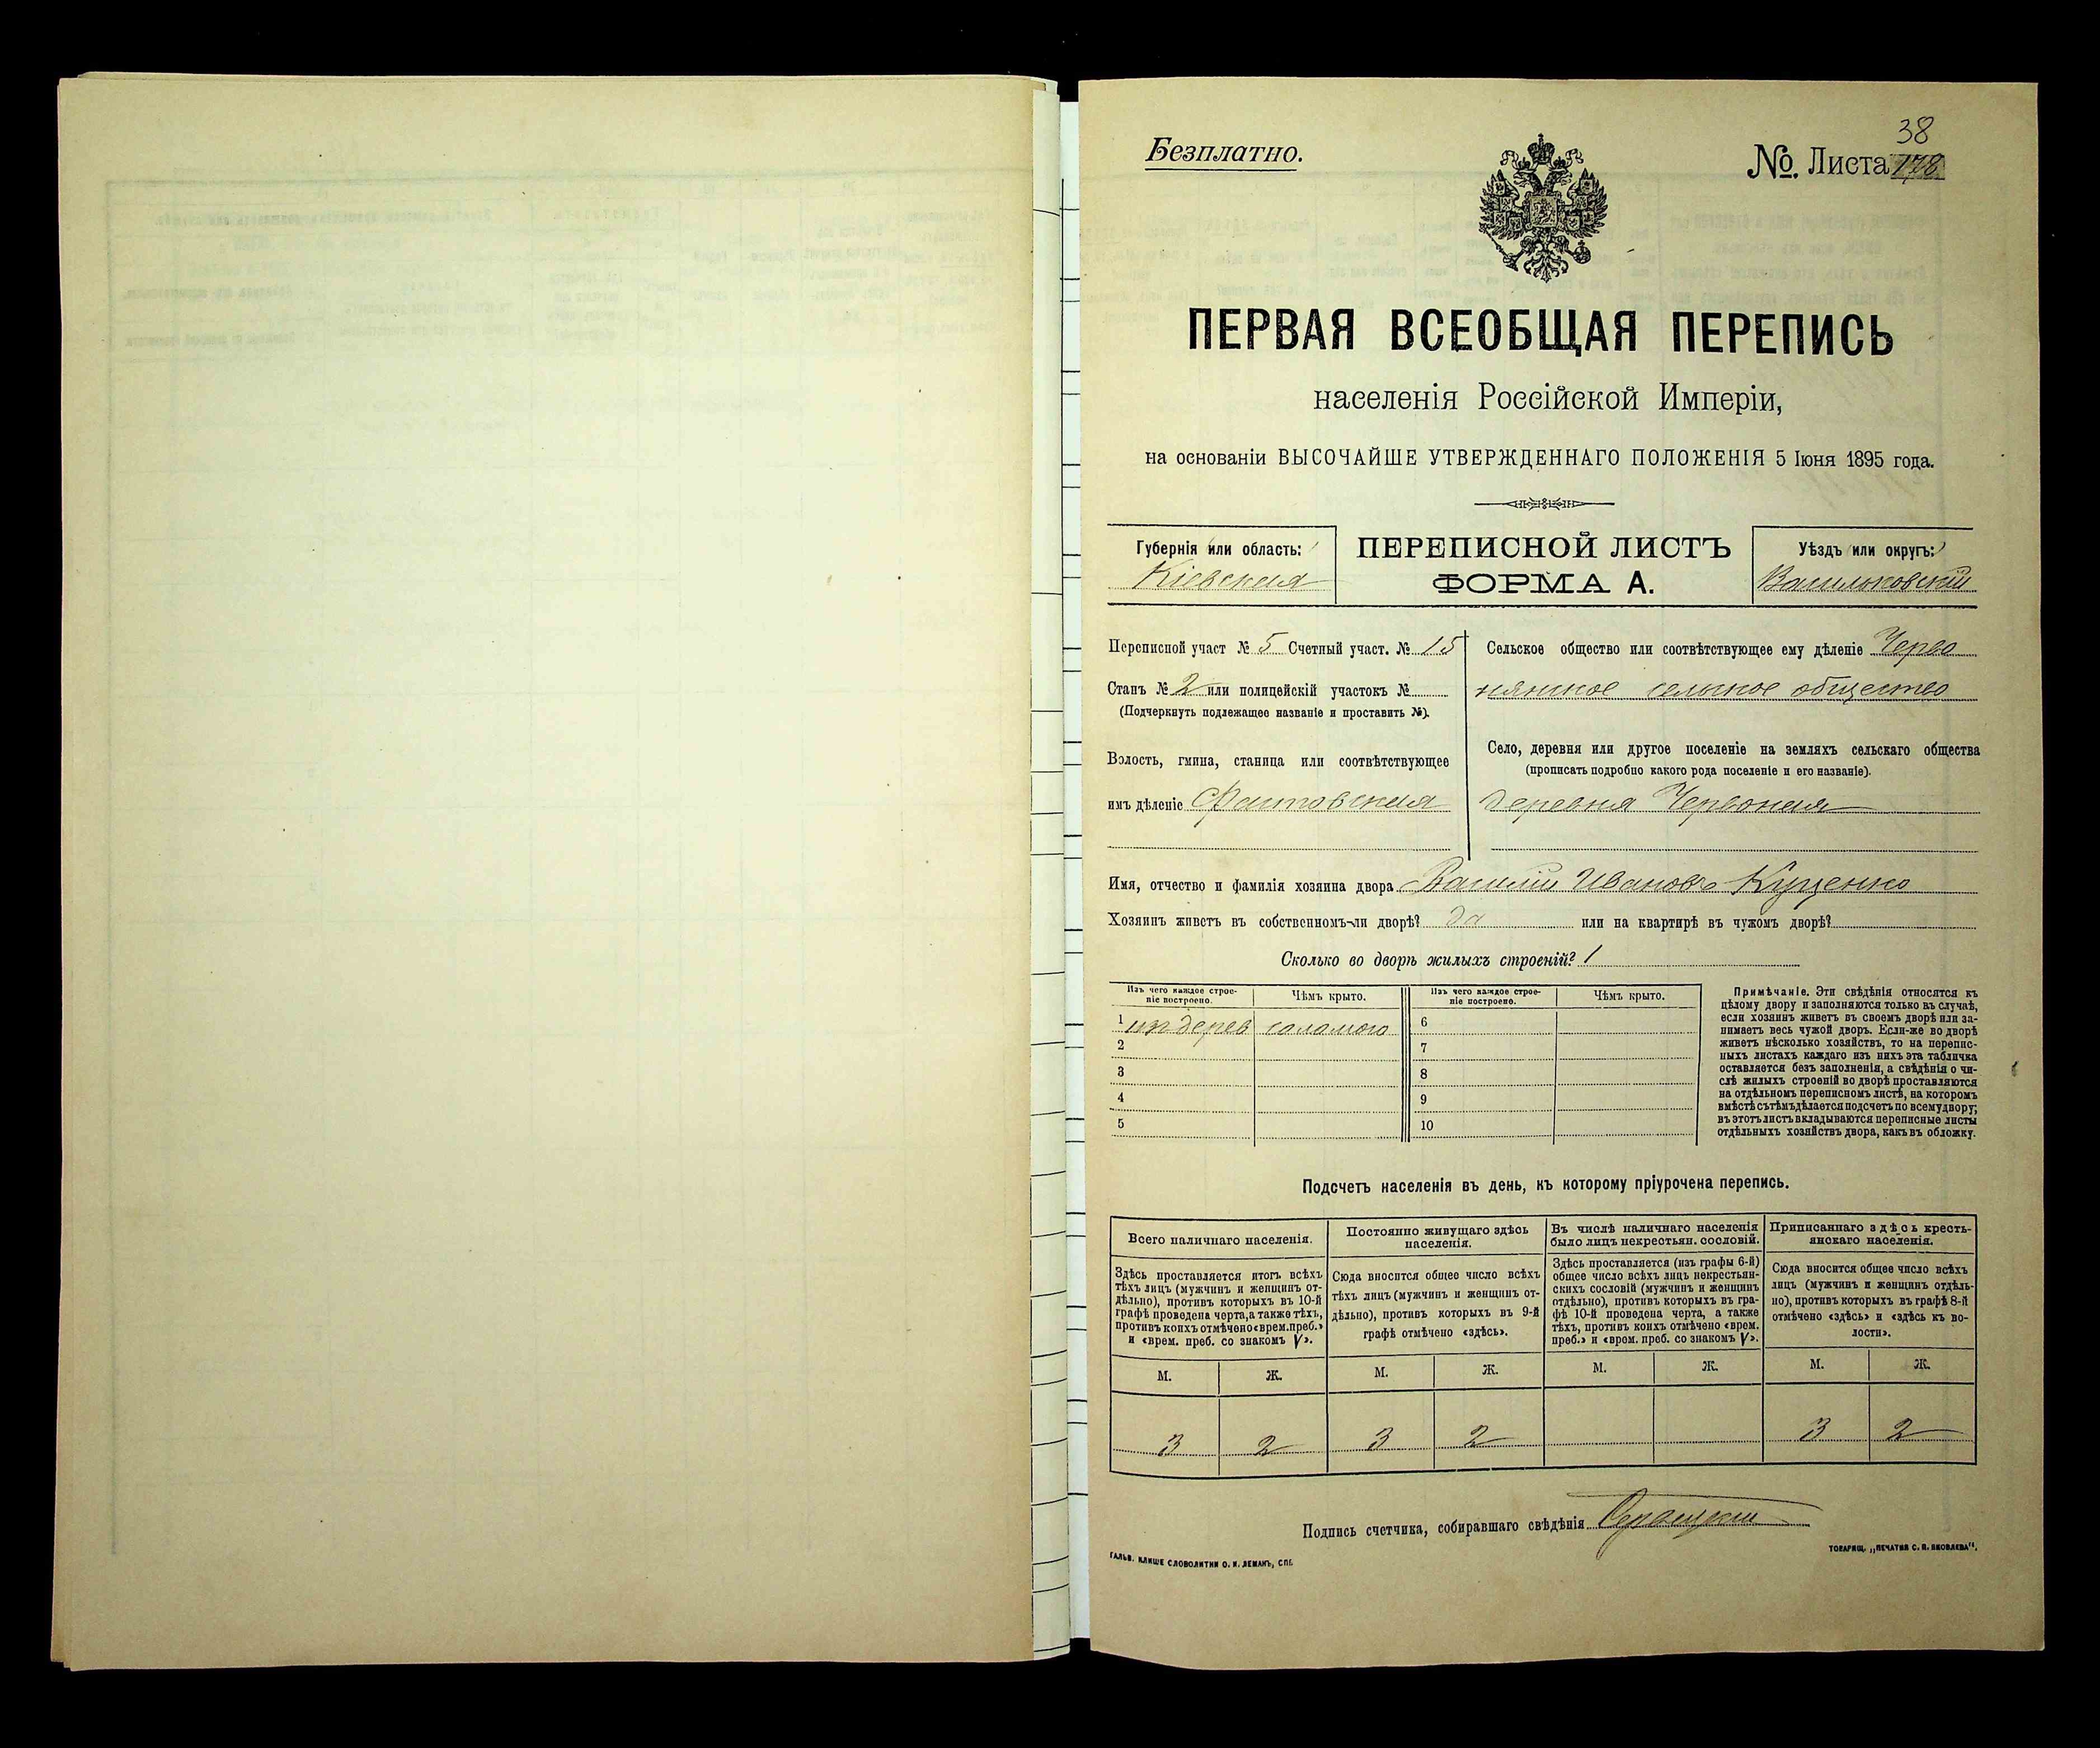 Безплатно.
38
№. Листа 178.
ПЕРВАЯ ВСЕОБЩАЯ ПЕРЕПИСЬ
населенія Россійской Имперіи,
на основаніи ВЫСОЧАЙШЕ УТВЕРЖДЕННАГО ПОЛОЖЕНІЯ 5 Іюня 1895 года.
Губернія или область:
Кіевская
ПЕРЕПИСНОЙ ЛИСТЪ
ФОРМА А.
Уѣздъ или округъ:
Васильковскій
Переписной участ № 5 Счетный участ. № 15
Станъ № 2 или полицейскій участокъ №
(Подчеркнуть подлежащее названіе и проставить №).
Волость, гмина, станица или соотвѣтствующее
имъ дѣленіе Фастовская
Сельское общество или соотвѣтствующее ему дѣленіе Черво
нянское сельское общество
Село, деревня или другое поселеніе на земляхъ сельскаго общества
(прописать подробно какого рода поселеніе и его названіе).
деревня Червоная
Имя, отчество и фамилія хозяина двора Василій Ивановъ Куценко
Хозяинъ живетъ въ собственномъ-ли дворѣ? да или на квартирѣ въ чужомъ дворѣ?
Сколько во дворѣ жилыхъ строеній? 1
Изъ чего каждое строе-
ніе построено.
Чѣмъ крыто.
Изъ чего каждое строе-
ніе построено.
Чѣмъ крыто.
1 изъ дерев соломою 6
2 7
3 8
4 9
5 10
Примѣчаніе. Эти свѣдѣнія относятся къ
цѣлому двору и заполняются только въ случаѣ,
если хозяинъ живетъ въ своемъ дворѣ или за-
нимаетъ весь чужой дворъ. Если-же во дворѣ
живетъ нѣсколько хозяйствъ, то на перепис-
ныхъ листахъ каждаго изъ нихъ эта табличка
оставляется безъ заполненія, а свѣдѣнія о чи-
слѣ жилыхъ строеній во дворѣ проставляются
на отдѣльномъ переписномъ листѣ, на которомъ
вмѣстѣ съ тѣмъ дѣлается подсчетъ по всему двору;
въ этотъ листъ вкладываются переписные листы
отдѣльныхъ хозяйствъ двора, какъ въ обложку.
Подсчетъ населенія въ день, къ которому пріурочена перепись.
Всего наличнаго населенія.
Здѣсь проставляется итогъ всѣхъ
тѣхъ лицъ (мужчинъ и женщинъ от-
дѣльно), противъ которыхъ въ 10-й
графѣ проведена черта, а также тѣхъ,
противъ коихъ отмѣчено «врем. преб.»
и «врем. преб. со знакомъ V».
Постоянно живущаго здѣсь
населенія.
Сюда вносится общее число всѣхъ
тѣхъ лицъ (мужчинъ и женщинъ от-
дѣльно), противъ которыхъ въ 9-й
графѣ отмѣчено «здѣсь».
Въ числѣ наличнаго населенія
было лицъ некрестьян. сословій.
Здѣсь проставляется (изъ графы 6-й)
общее число всѣхъ лицъ некрестьян-
скихъ сословій (мужчинъ и женщинъ
отдѣльно), противъ которыхъ въ гра-
фѣ 10-й проведена черта, а также
тѣхъ, противъ коихъ отмѣчено «врем.
преб.» и «врем. преб. со знакомъ V».
Приписаннаго здѣсь кресть-
янскаго населенія.
Сюда вносится общее число всѣхъ
лицъ (мужчинъ и женщинъ отдѣль-
но), противъ которыхъ въ графѣ 8-й
отмѣчено «здѣсь» и «здѣсь къ во-
лости».
М. Ж. М. Ж. М. Ж. М. Ж.
3 2 3 2 3 2
Подпись счетчика, собиравшаго свѣдѣнія
ГАЛЬВ. КЛИШЕ СЛОВОЛИТНИ О. И. ЛЕМАНЪ, СПБ.
ТОВАРИЩ. „ПЕЧАТНЯ С. П. ЯКОВЛЕВА".